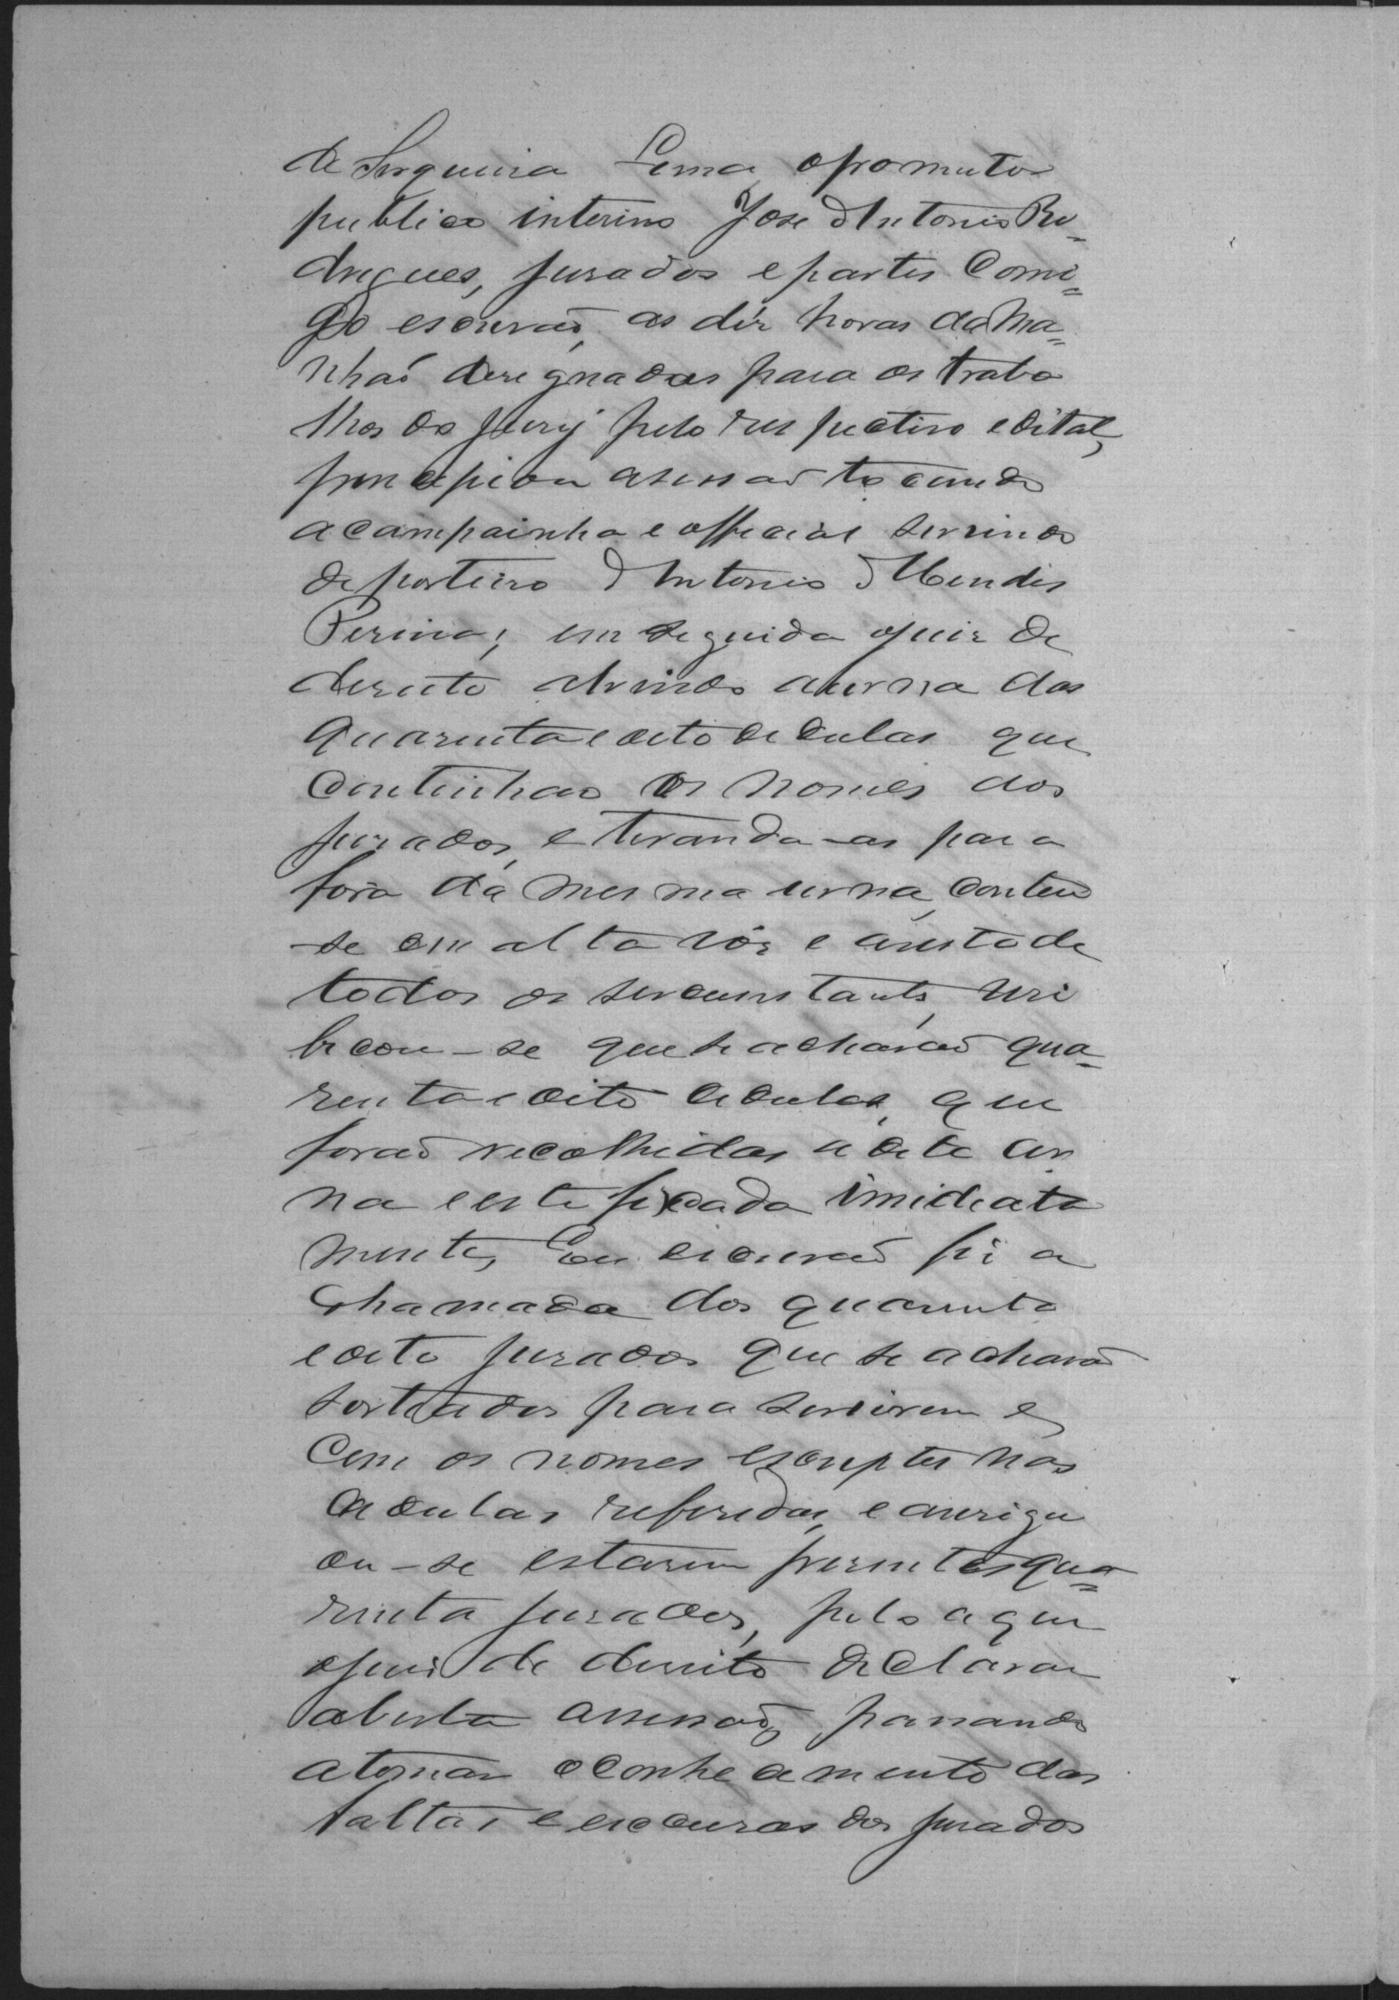 de Serqueira Lima, o promutor
publico interino José Antonio Ro=
drigues, jurados e partes comi=
go escrivaõ, as déz horas da ma=
nhaã designadas para os traba
lhos do jury pelo respectivo edital,
principiou a sessaõ tocando
a campainha e official servindo
de porteiro Antonio Mendes
Pereira; em seguida o juiz de
dereito abrindo a urna das
quarenta e oito cedulas que
continhaõ os nomes dos
jurados, e tirando-as para
fora da mesma urna, contou
-se em alta vóz e a vista de
todos os sircunstants, viri
ficou-se que se achavaõ qua=
renta e oito cedulas, que
foraõ recolhidas a dita ur
na e esta fixada imidiata
mente, Eu escrivaõ fiz a
chamada dos quarenta
e oito jurados que se achavaõ
sorteados para servirem e
com os nomes escriptos nas
cedulas referidas, e averigu
ou-se estarem prezentes qua=
renta jurados, pelo a que
o juiz de direito declarou
aberta a sessaõ, passando
a tomar o conhecimento das
faltas e escuzas dos jurados